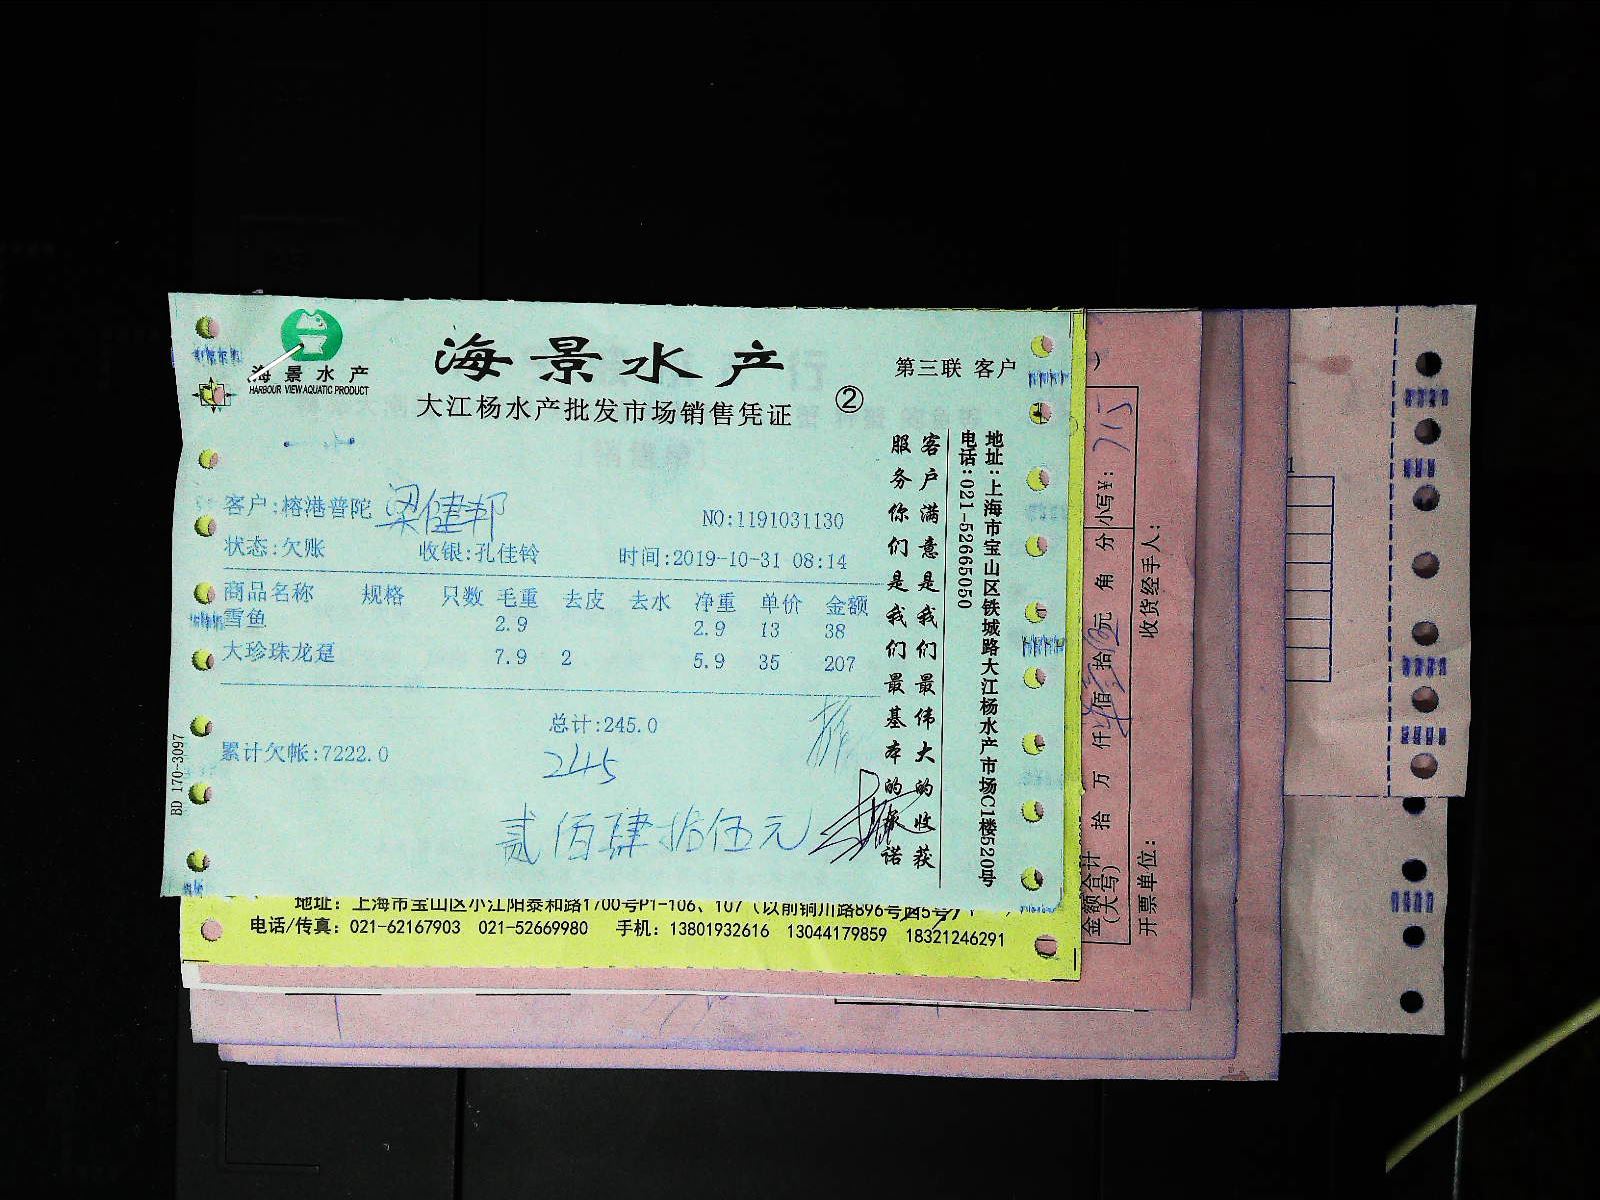 海景水产
HARBOUR VIEW AQUATIC PRODUCT
海景水产
第三联 客户
大江杨水产批发市场销售凭证 ②
客户:榕港普陀 梁健邦
NO:1191031130
状态:欠账 收银:孔佳铃 时间:2019-10-31 08:14
商品名称 规格 只数 毛重 去皮 去水 净重 单价 金额
雪鱼 2.9 2.9 13 38
大珍珠龙趸 7.9 2 5.9 35 207
总计:245.0
累计欠帐:7222.0
245
贰佰肆拾伍元
BD 170-3097
客户满意是我们最伟大的收获
服务你们是我们最基本的承诺
地址:上海市宝山区铁城路大江杨水产市场C1楼520号
电话:021-52665050
地址：上海市宝山区小江阳泰和路1700号P1-106、107（以前铜川路896号西5号）
电话/传真：021-62167903 021-52669980 手机：13801932616 13044179859 18321246291
金额合计
(大写)
拾 万 仟 佰 拾 元 角 分 小写¥: 715
开票单位: 收货经手人: